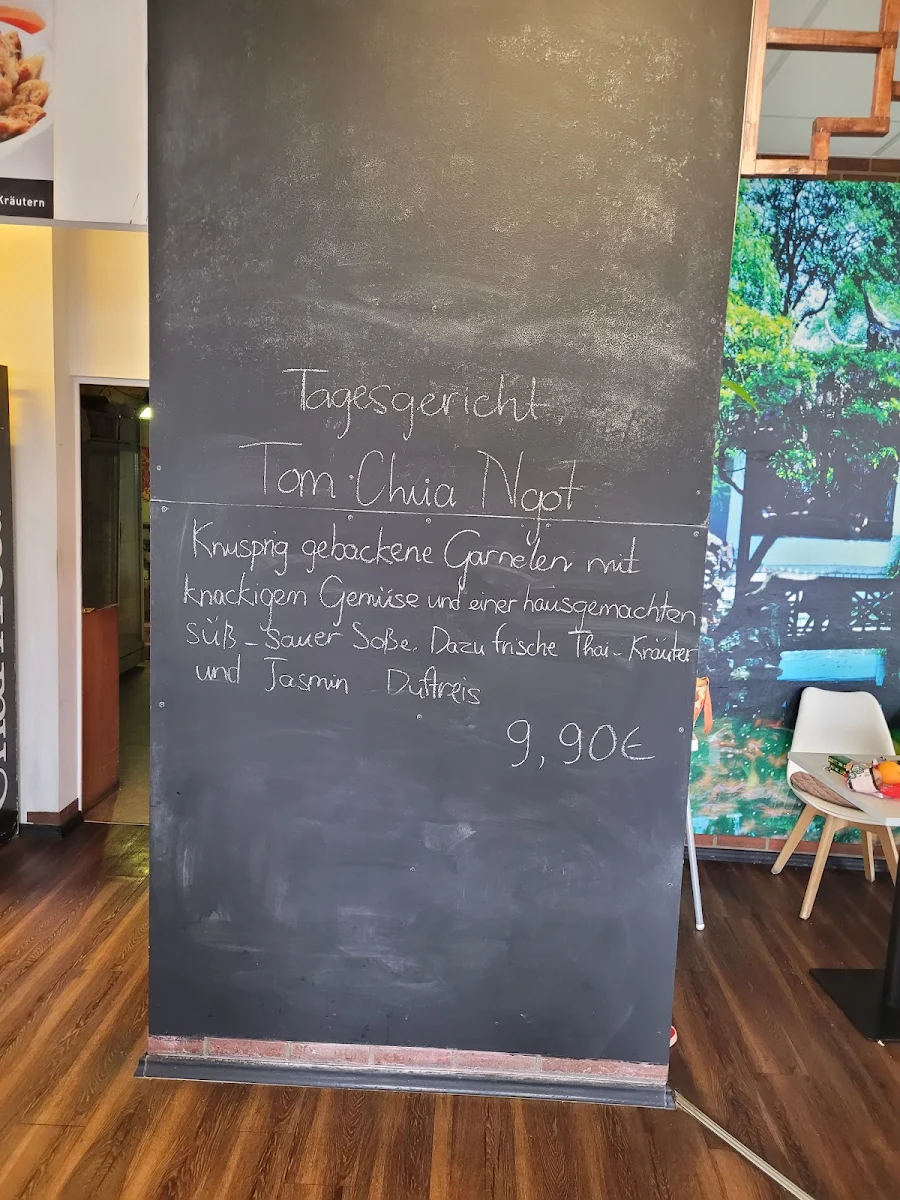 Kräutern
Tagesgericht
Tom Chua Ngot
Knusprig gebackene Garnelen mit
knackigem Gemüse und einer hausgemachten
süß-sauer Soße. Dazu frische Thai-Kräuter
und Jasmin Duftreis
9,90€